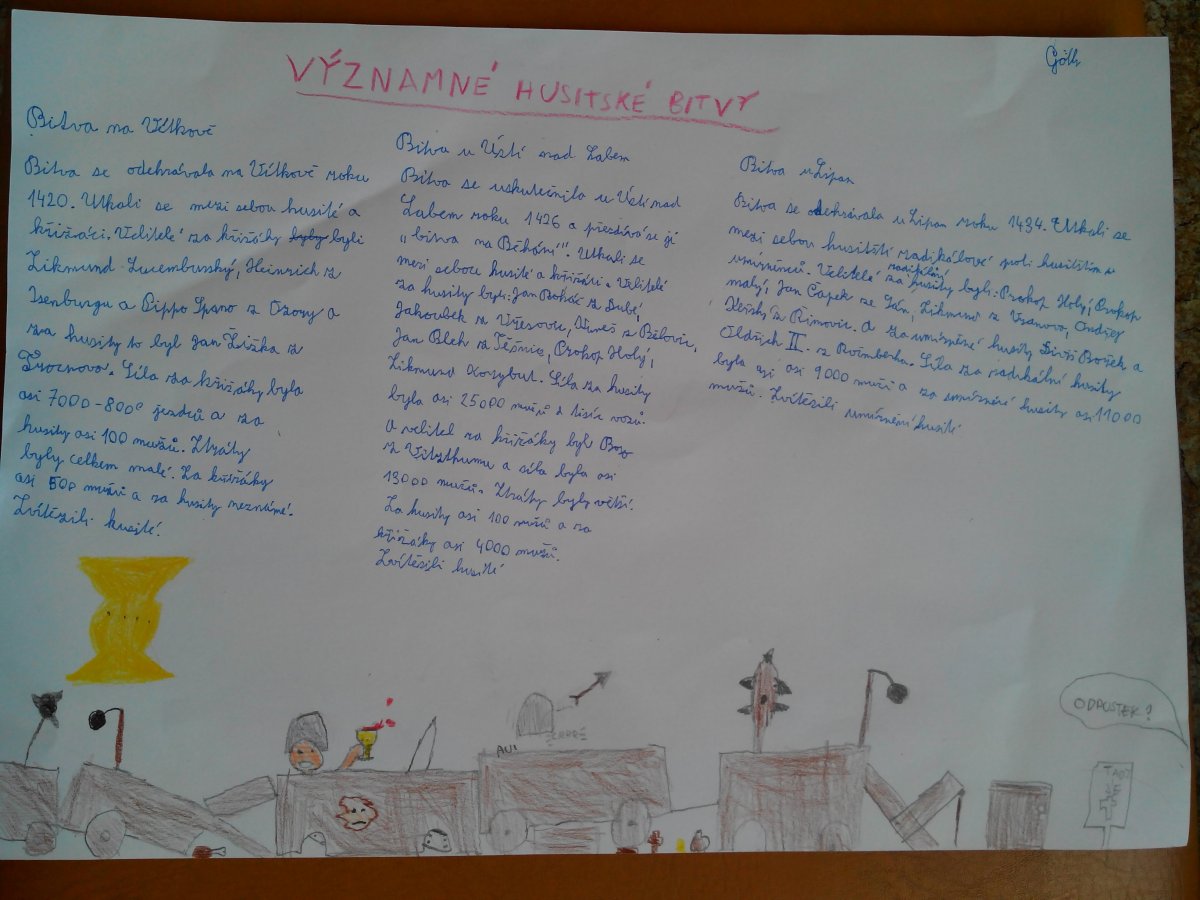 Góth
VÝZNAMNÉ HUSITSKÉ BITVY
Bitva na Vítkově
Bitva se odehrávala na Vítkově roku
1420. Utkali se mezi sebou husité a
křižáci. Velitelé za křižáky byly byli
Zikmund Lucemburský, Heinrich z
Isenburgu a Pippo Spano z Ozory a
za husity to byl Jan Žižka z
Trocnova. Síla za křižáky byla
asi 7000-8000 jezdců a za
husity asi 100 mužů. Ztráty
byly celkem malé. Za křižáky
asi 500 mužů a za husity neznámé.
Zvítězili husité.
Bitva u Ústí nad Labem
Bitva se uskutečnila u Ústí nad
Labem roku 1426 a přezdívá se jí
"bitva na Běhání". Utkali se
mezi sebou husité a křižáci. Velitelé
za husity byli: Jan Roháč z Dubé,
Jakoubek z Vřesovic, Vaněk z
Jan Blek z Těšnic, Prokop Holý,
Zikmund Korybut. Síla za husity
byla asi 25000 mužů a tisíc vozů.
A velitel za křižáky byl Boso
z Vitzthumu a síla byla asi
13000 mužů. Ztráty byly větší.
Za husity asi 100 mužů a za
křižáky asi 4000 mužů.
Zvítězili husité
Bitva u Lipan
Bitva se odehrávala u Lipan roku 1434. Utkali se
mezi sebou husitští radikálové proti husitským
umírněnců. Velitelé za radikální husity byli: Prokop Holý, Prokop
malý, Jan Čapek ze Sán, Zikmund z Vranova, Ondřej
Keřský z Rimovic. A za umírněné husity Diviš Bořek a
Oldřich II. z Rožmberka. Síla za radikální husity
byla asi 9000 mužů a za umírněné husity asi 11000
mužů. Zvítězili umírnění husité
ODPUSTEK!
AU!
TADY
JE